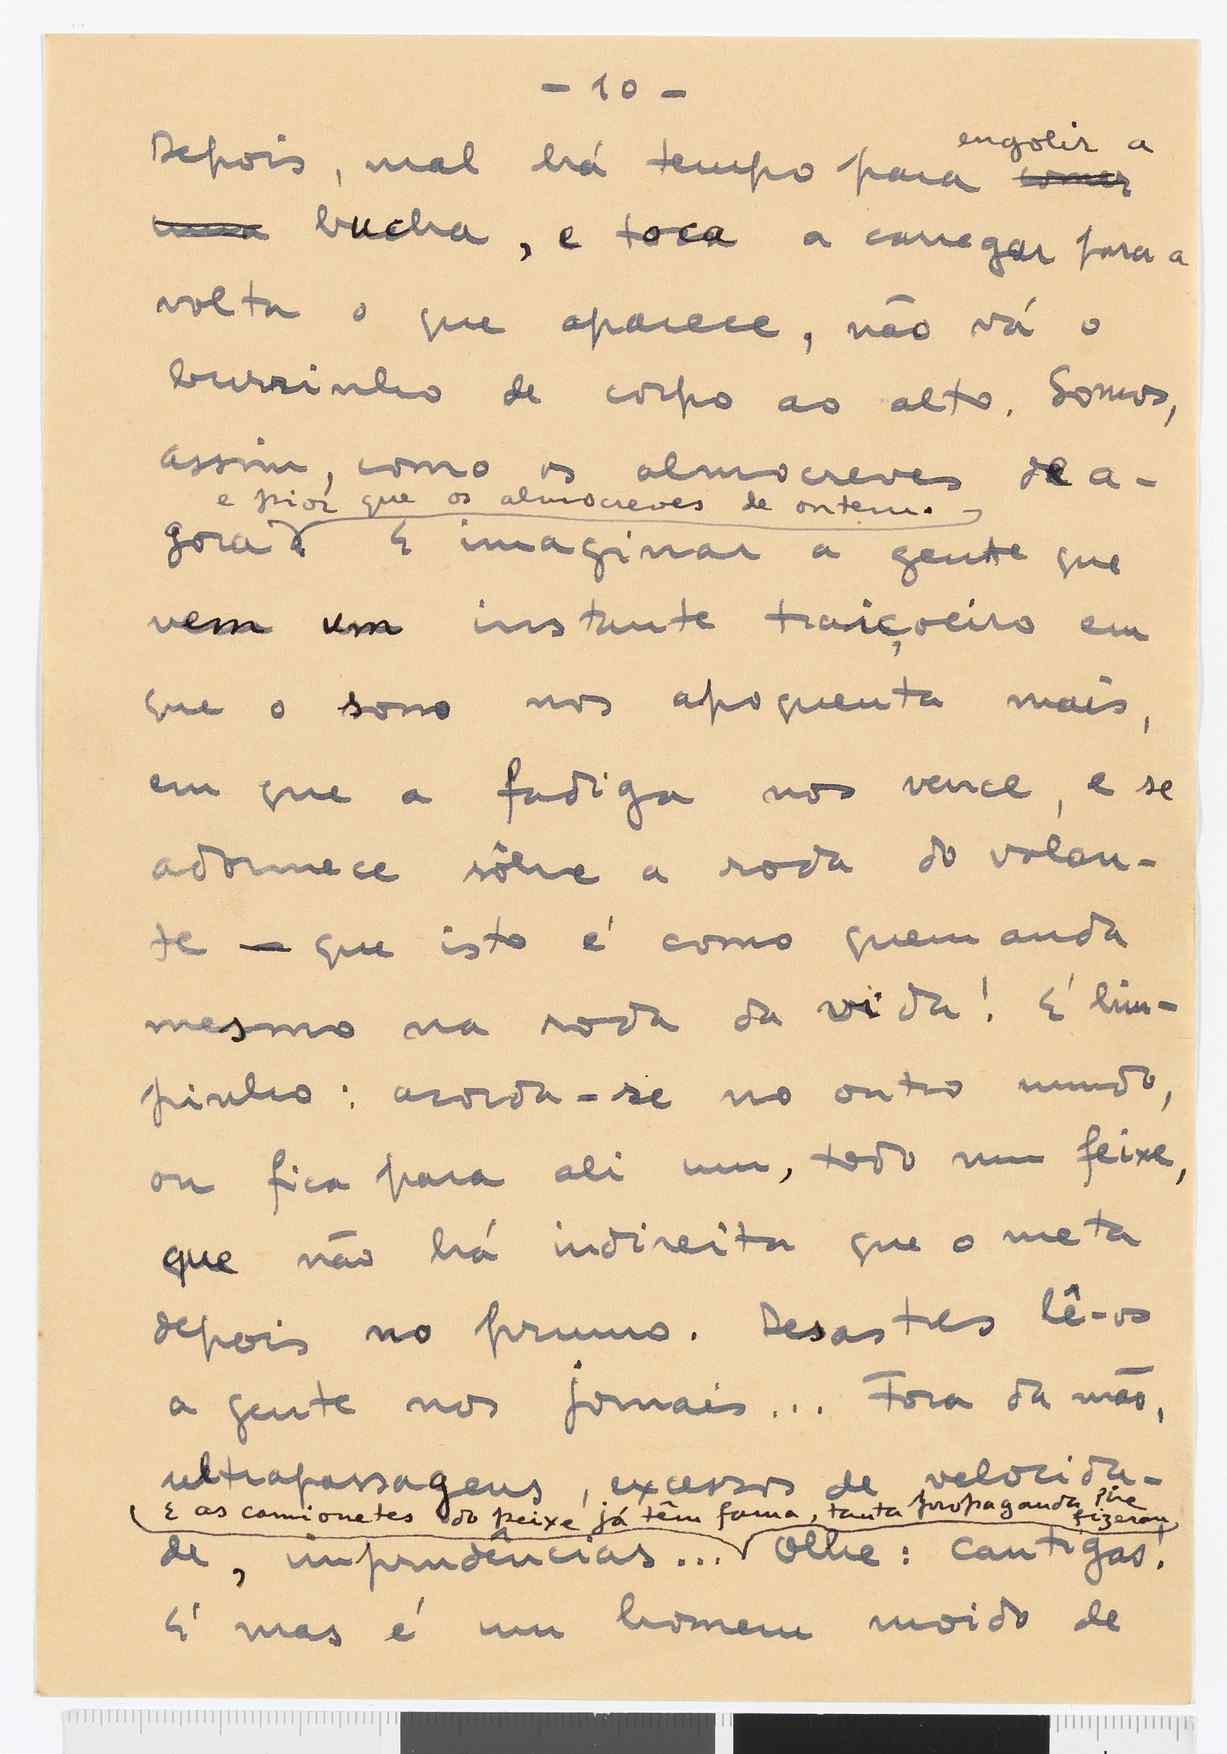 - 10 -
engolir a
Depois, mal há tempo para comer
uma bucha, e toca a carregar para a
volta o que aparece, não vá o
burrinho de corpo ao alto. Somos,
assim, como os almocreves de a-
e pior que os almocreves de ontem.
gora. E imaginar a gente que
vem um instante traiçoeiro em
que o sono nos apoquenta mais,
em que a fadiga nos vence, e se
adormece sôbre a roda do volan-
te — que isto é como quem anda
mesmo na roda da vida! É lim-
pinho: acorda-se no outro mundo,
ou fica para ali um, todo num feixe,
que não há indireita que o meta
depois no prumo. Desastres lê-os
a gente nos jornais... Fora da mão,
ultrapassagens, excessos de velocida-
E as camionetes do peixe já têm fama, tanta propaganda lhe fizeram!
de, imprudências... Olhe: cantigas!
É mas é um homem moido de